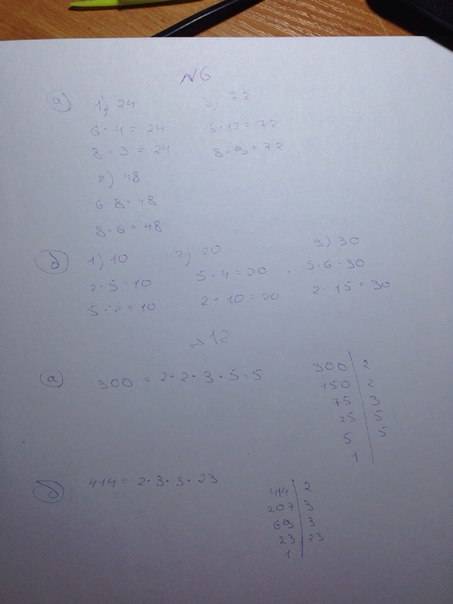 №6
а) 1) 24
6·4 = 24
8·3 = 24
2) 48
6·8=48
8·6=48
3) 72
6·12=72
8·9=72
б) 1) 10
2·5=10
5·2=10
2) 20
5·4=20
2·10=20
3) 30
5·6=30
2·15=30
№12
а) 300 = 2·2·3·5·5
300 | 2
150 | 2
75 | 3
25 | 5
5 | 5
1 |
б) 414 = 2·3·3·23
414 | 2
207 | 3
69 | 3
23 | 23
1 |